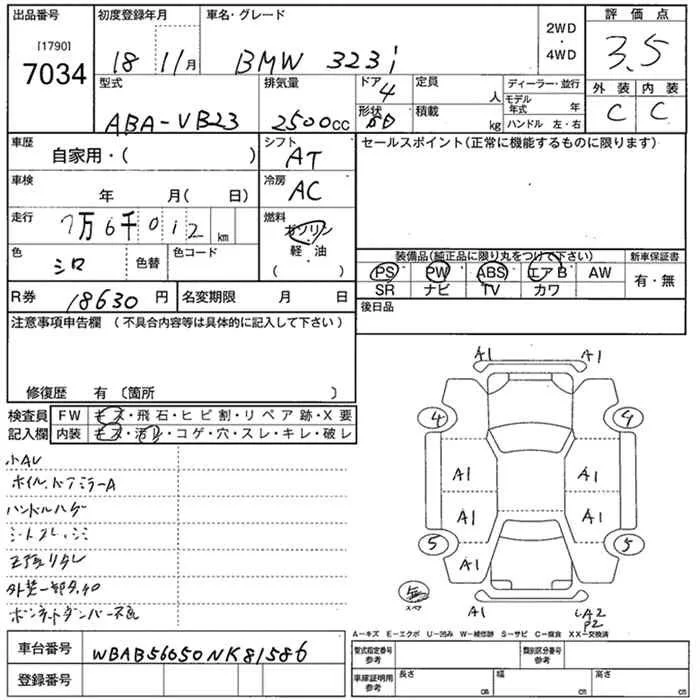 出品番号 初度登録年月 車名・グレード 2WD・4WD 評価点
[1790]
7034
18 11月 BMW 323i 3.5
型式 排気量 ドア 4 定員 人 ディーラー・並行 外装 内装
形状 積載 kg モデル年式 年
ABA-VB23 2500cc ハンドル 左・右 C C
車歴 シフト セールスポイント(正常に機能するものに限ります)
自家用・( ) AT
車検 冷房
年 月( 日) AC
走行 燃料
7万6千012km ガソリン
色 色替 色コード 軽・油 装備品(純正品に限り丸をつけて下さい) 新車保証書
シロ ( ) PS PW ABS エアB AW 有・無
R券 18630円 名変期限 月 日 SR ナビ TV カワ
後日品
注意事項申告欄 (不具合内容等は具体的に記入して下さい)
修復歴 有 〔箇所 〕
検査員 FW キズ・飛石・ヒビ割・リペア跡・X要
記入欄 内装 キズ・汚レ・コゲ・穴・スレ・キレ・破レ
小AU
ホイル、ドアミラーA
ハンドルハゲ
外装一部タッチ
ボンネットダンパー不良
A1 A1
4 4
A1 A1
A1 A1
5 A1 A1 5
無
スペア
A1 A2
P2
A-キズ E-エクボ U-凹み W-補修跡 S-サビ C-腐食 XX-交換済
車台番号 WBAB56050NK81586
登録番号
型式指定番号 参考 類別区分番号 参考
車庫証明用 参考 長さ cm 幅 cm 高さ cm